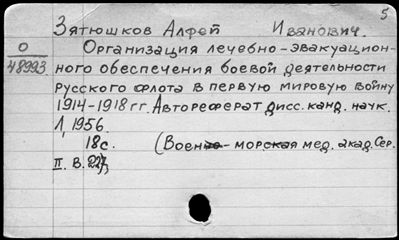 5
Зятюшков Алфей Иванович.
О
48993
Организация лечебно-эвакуацион-
ного обеспечения боевой деятельности
русского флота в первую мировую войну
1914-1918 гг. Автореферат дисс. канд. наук.
Л, 1956.
18 с. (Военно-морская мед. акад. Сер.
II. В. 227)